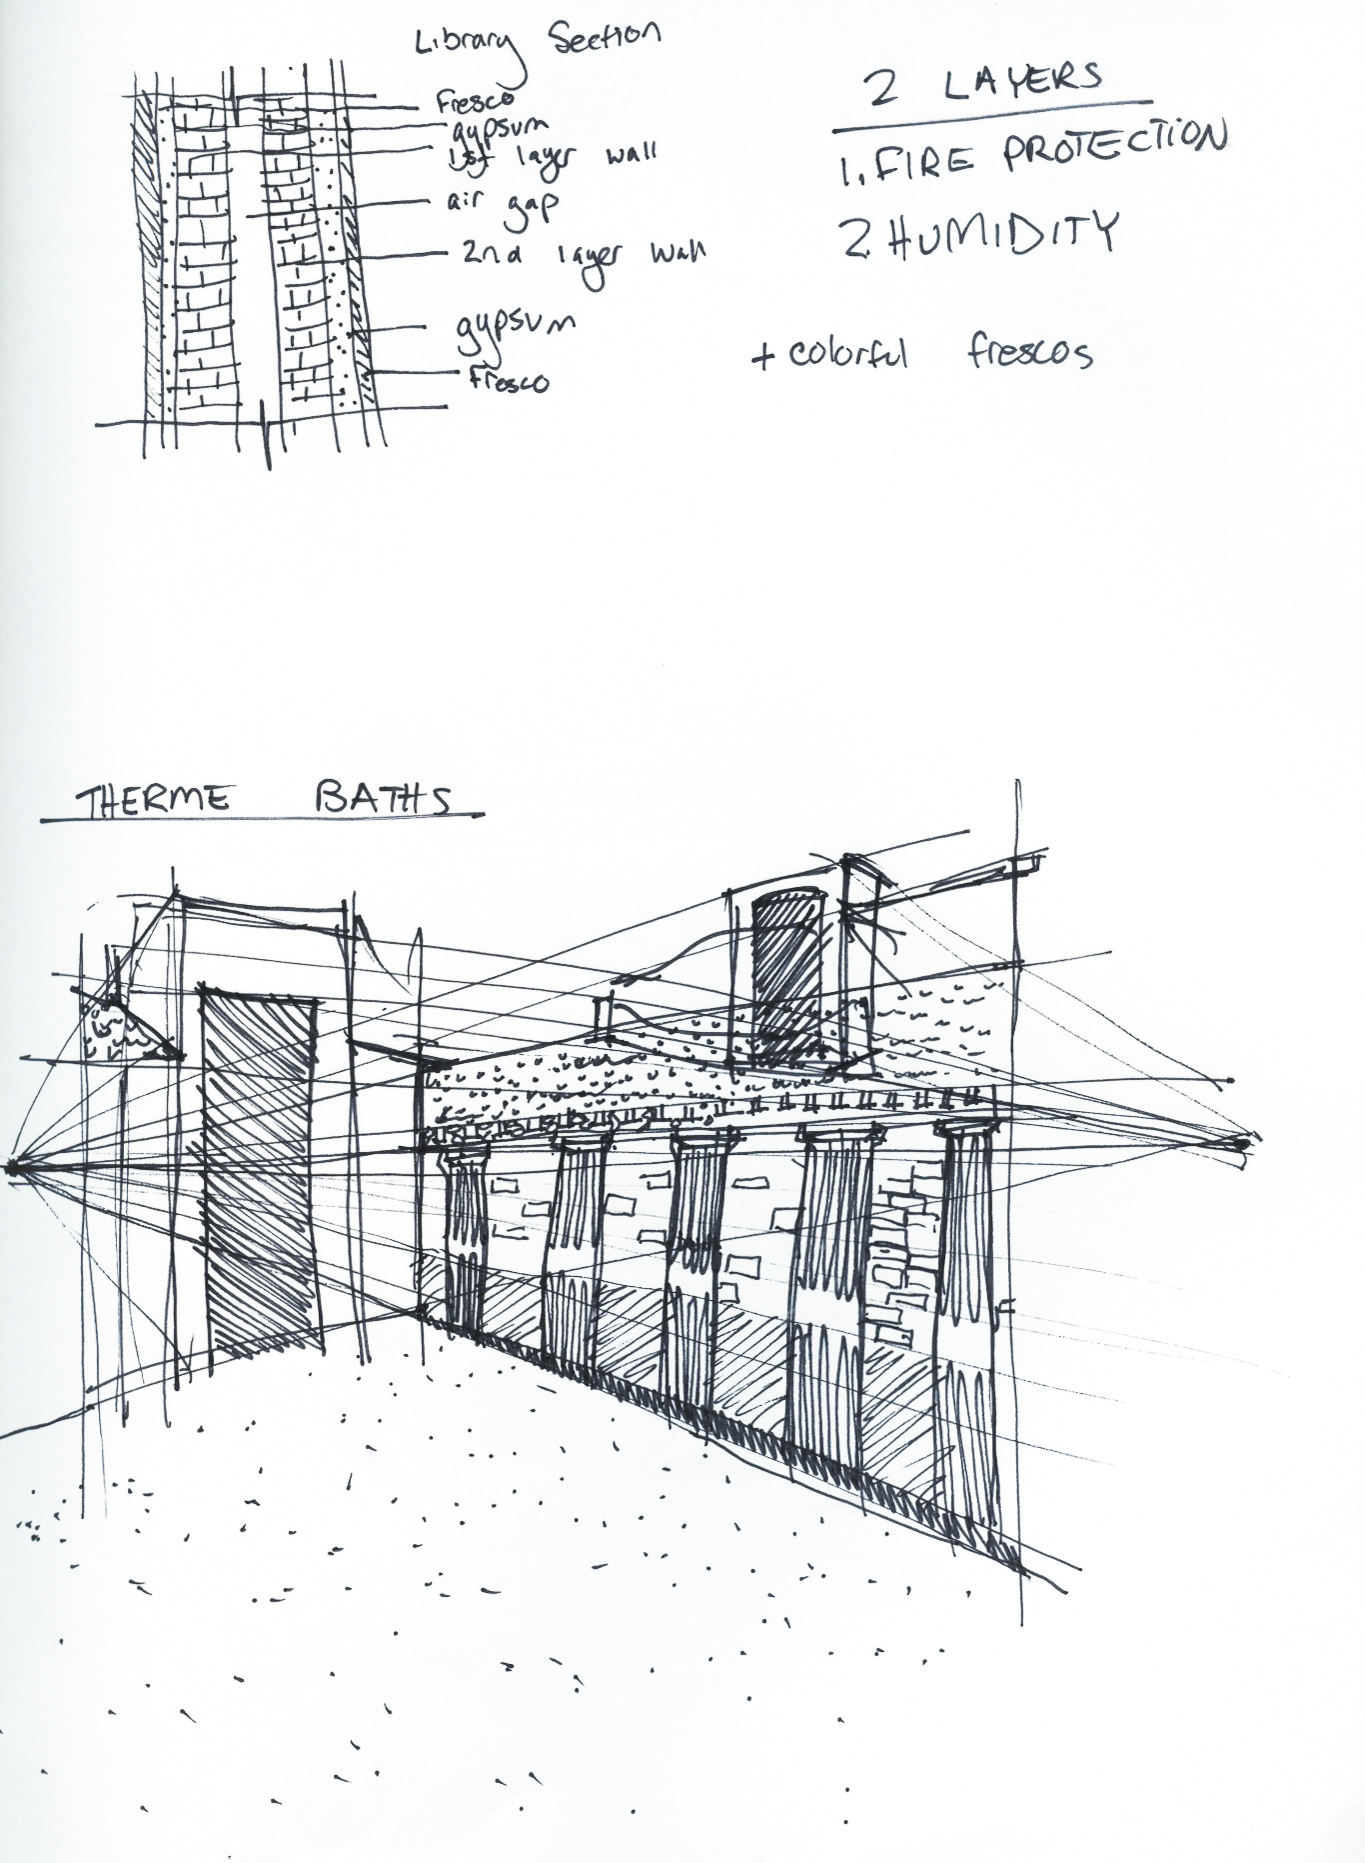 Library Section
Fresco
gypsum
1st layer wall
air gap
2nd layer wall
gypsum
Fresco
2 LAYERS
1. FIRE PROTECTION
2 HUMIDITY
+ colorful frescos
THERME BATHS